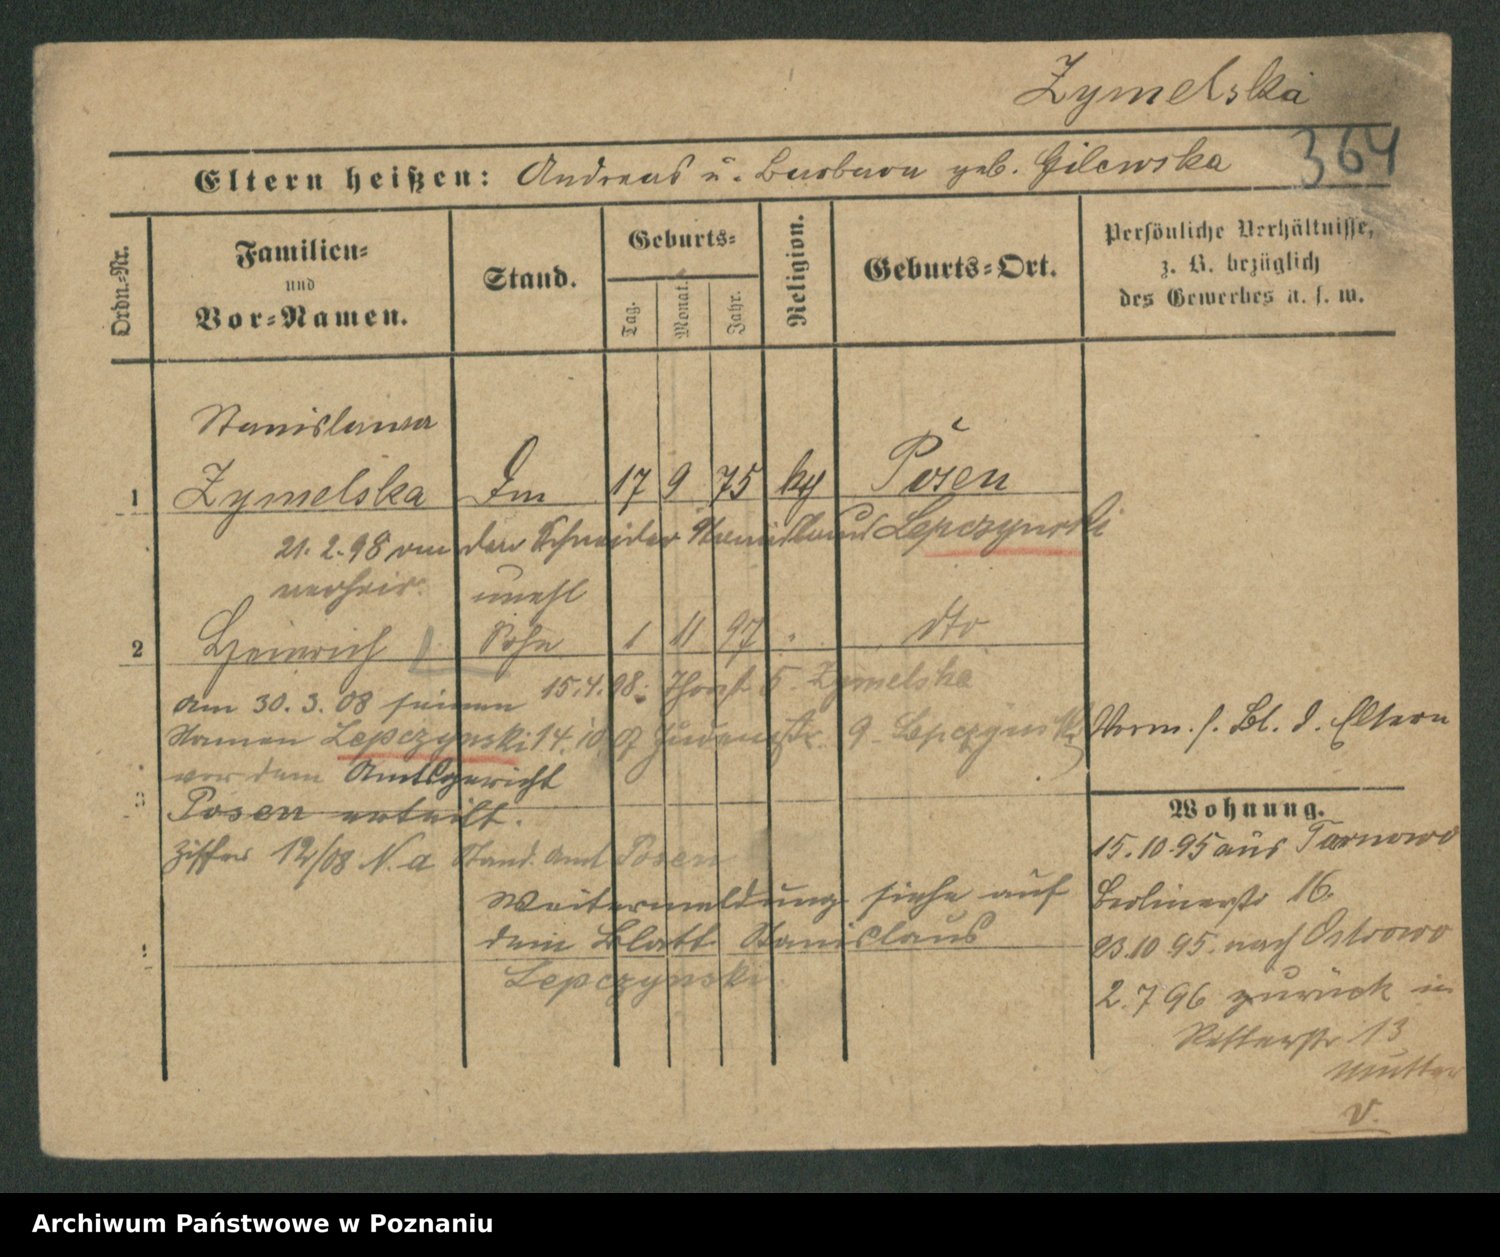 Zymelska
364
Eltern heißen: Andreas u. Barbara geb. Gilewska
Ordn.-Nr.
Familien-
und
Vor-Namen.
Stand.
Geburts-
Tag.
Monat.
Jahr.
Religion.
Geburts-Ort.
Persönliche Verhältnisse,
z. B. bezüglich
des Gewerbes u. s. w.
Stanislawa
1 Zymelska 17 9 75 Posen
21.2.98 von dem Schneider Stanislaus Lepczynski
verheir.
unehl
2 Heinrich Sohn 1 11 97 " dto
15.4.98: Thorst 5. Zymelska
Am 30.3.08 seinen
Namen Lepczynski 14.10.07 9 Lepczynski
vor dem Amtsgericht
3 Posen erteilt.
Ziffer 12/08 N.a Stand. Amt Posen
Weitermeldung siehe auf
dem Blatt Stanislaus
Lepczynski
Vorm. s. Bl. d. Eltern
Wohnung.
15.10.95 aus Tarnowo
Berlinerstr 16.
23.10.95. nach Ostrowo
2.7 96 zurück in
Ritterstr 13
Mutter
v.
Archiwum Państwowe w Poznaniu